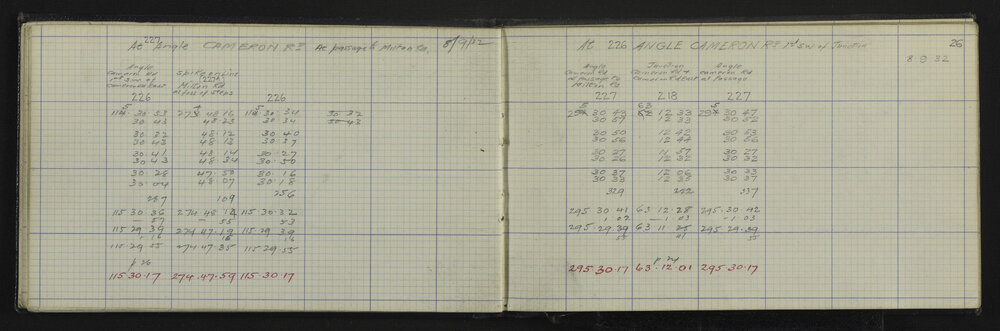 227
At Angle CAMERON Rd At passage to Milton Rd. 8/9/32
Angle
Cameron Rd
1st S.W. of
Cameron Rd East
226
Spike
(227A)
Milton Rd
at foot of steps
226
30 43 48 23 30 34
30 32 48 12 30 40
30 43 48 13 30 37
30 41 48 14 30 27
30 43 48 34 30 50
30 28 47 50 30 16
30 04 48 07 30 18
257 109 256
115 30 36 274 48 14 115 30.32
57 55 53
115 29 39 274 47.19 115 29 39
16 16 16
115 29 55 274 47.35 115 29.55
p 26
115.30.17 274.47.59 115.30.17
At 226 ANGLE CAMERON Rd 1st S.W of Junction 26
8 9 32
Angle
Cameron Rd
at Passage to
Milton Rd
227
Junction
Cameron Rd &
Cameron Rd East
218
Angle
Cameron Rd
at Passage
227
30 57 12 33 30 52
30 50 12 42 30 53
30 56 12 44 30 56
30 27 11 57 30 27
30 26 12 32 30 32
30 37 12 06 30 33
30 39 12 35 30 37
329 222 337
295 30 41 63 12.28 295.30.42
1 02 1 03 1 03
295.29.39 63 11 25 295.29.39
p 24
295.30.17 63.12.01 295.30.17